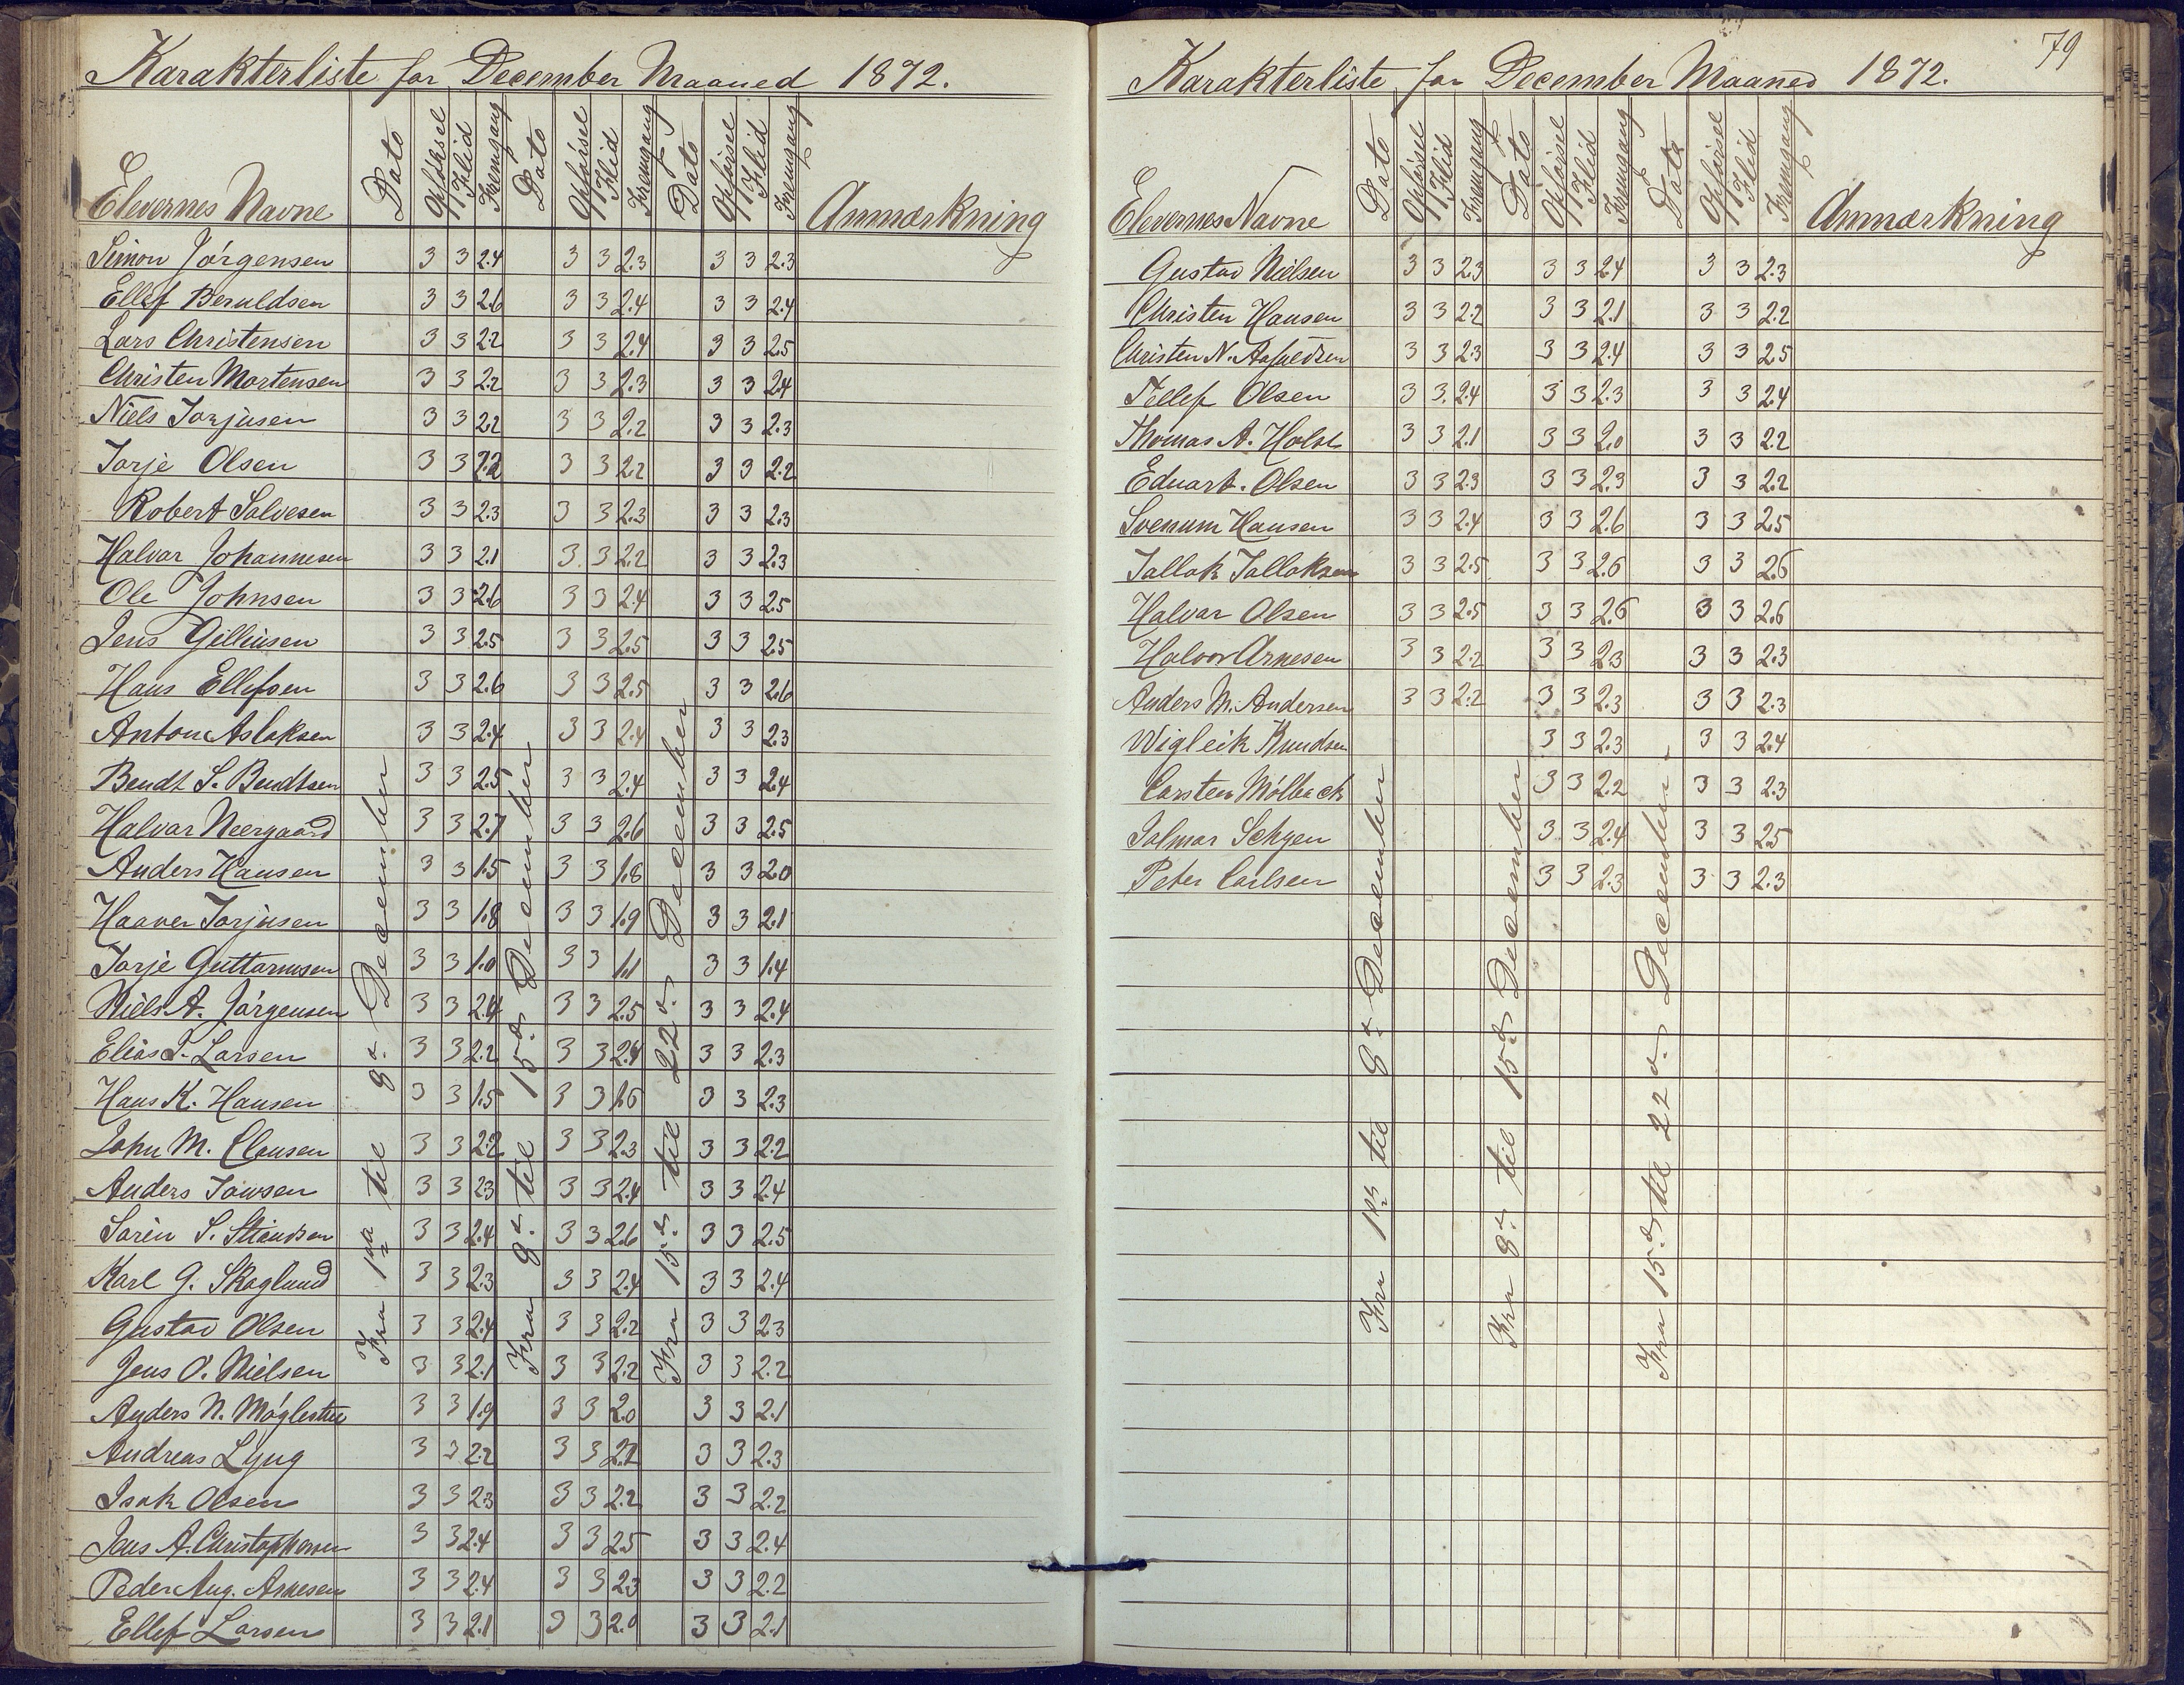 Karakterliste for December Maaned 1872.
Elevernes Navne Dato Opførsel Flid Fremgang Dato Opførsel Flid Fremgang Dato Opførsel Flid Fremgang Anmærkning
Simon Jørgensen 3 3 2.4 3 3 2.3 3 3 2.3
Ellef Beruldsen 3 3 2.6 3 3 2.4 3 3 2.4
Lars Christensen 3 3 2.2 3 3 2.4 3 3 2.5
Christen Mortensen 3 3 2.2 3 3 2.3 3 3 2.4
Niels Torjusen 3 3 2.2 3 3 2.2 3 3 2.3
Torje Olsen 3 3 2.2 3 3 2.2 3 3 2.2
Robert Salvesen 3 3 2.3 3 3 2.3 3 3 2.3
Halvar Johannesen 3 3 2.1 3 3 2.2 3 3 2.3
Ole Johnsen 3 3 2.6 3 3 2.4 3 3 2.5
Jens 3 3 2.5 3 3 2.5 3 3 2.5
Hans Ellefsen 3 3 2.6 3 3 2.5 3 3 2.6
Anton Aslaksen 3 3 2.4 3 3 2.4 3 3 2.3
Bendt S. Bendtsen 3 3 2.5 3 3 2.4 3 3 2.4
Halvar Neergaard 3 3 2.7 3 3 2.6 3 3 2.5
Anders Hansen 3 3 1.5 3 3 1.8 3 3 2.0
Haaver Torjusen 3 3 1.8 3 3 1.9 3 3 2.1
Torje Guttormsen 3 3 1.0 3 3 1.1 3 3 1.4
Niels A. Jørgensen 3 3 2.4 3 3 2.5 3 3 2.4
Elias T. Larsen 3 3 2.2 3 3 2.4 3 3 2.3
Hans K. Hansen 3 3 1.5 3 3 1.6 3 3 2.3
John M. Clausen 3 3 2.2 3 3 2.3 3 3 2.2
Anders 3 3 2.3 3 3 2.4 3 3 2.4
Søren S. 3 3 2.4 3 3 2.6 3 3 2.5
Karl G. Skoglund 3 3 2.3 3 3 2.4 3 3 2.4
Gustav Olsen 3 3 2.4 3 3 2.2 3 3 2.3
Jens O. Nielsen 3 3 2.1 3 3 2.2 3 3 2.2
Anders N. Møglestue 3 3 1.9 3 3 2.0 3 3 2.1
Andreas Lyng 3 3 2.2 3 3 2.2 3 3 2.3
Isak Olsen 3 3 2.3 3 3 2.2 3 3 2.2
Jens A. Christophersen 3 3 2.4 3 3 2.5 3 3 2.4
Peder Aug. Arnesen 3 3 2.4 3 3 2.3 3 3 2.2
Ellef Larsen 3 3 2.1 3 3 2.0 3 3 2.1
Fra 1ste til 8de December
Fra 8de til 15de December
Fra 15de til 22de December
79
Karakterliste for December Maaned 1872.
Elevernes Navne Dato Opførsel Flid Fremgang Dato Opførsel Flid Fremgang Dato Opførsel Flid Fremgang Anmærkning
Gustav Nielsen 3 3 2.3 3 3 2.4 3 3 2.3
Christen Hansen 3 3 2.2 3 3 2.1 3 3 2.2
Christen N. 3 3 2.3 3 3 2.4 3 3 2.5
Tellef Olsen 3 3. 2.4 3 3 2.3 3 3 2.4
Thomas A. Holst 3 3 2.1 3 3 2.0 3 3 2.2
Eduart. Olsen 3 3 2.3 3 3 2.3 3 3 2.2
Svenum Hansen 3 3 2.4 3 3 2.6 3 3 2.5
Tallak Tallaksen 3 3 2.5 3 3 2.6 3 3 2.6
Halvar Olsen 3 3 2.5 3 3 2.6 3 3 2.6
Halvor Arnesen 3 3 2.2 3 3 2.3 3 3 2.3
Anders M. Andersen 3 3 2.2 3 3 2.3 3 3 2.3
Wigleik Knudsen 3 3 2.3 3 3 2.4
Carsten Mølback 3 3 2.2 3 3 2.3
Jalmar 3 3 2.4 3 3 2.5
Peter Carlsen 3 3 2.3 3 3 2.3
Fra 1ste til 8de December
Fra 8de til 15de December
Fra 15de til 22de December